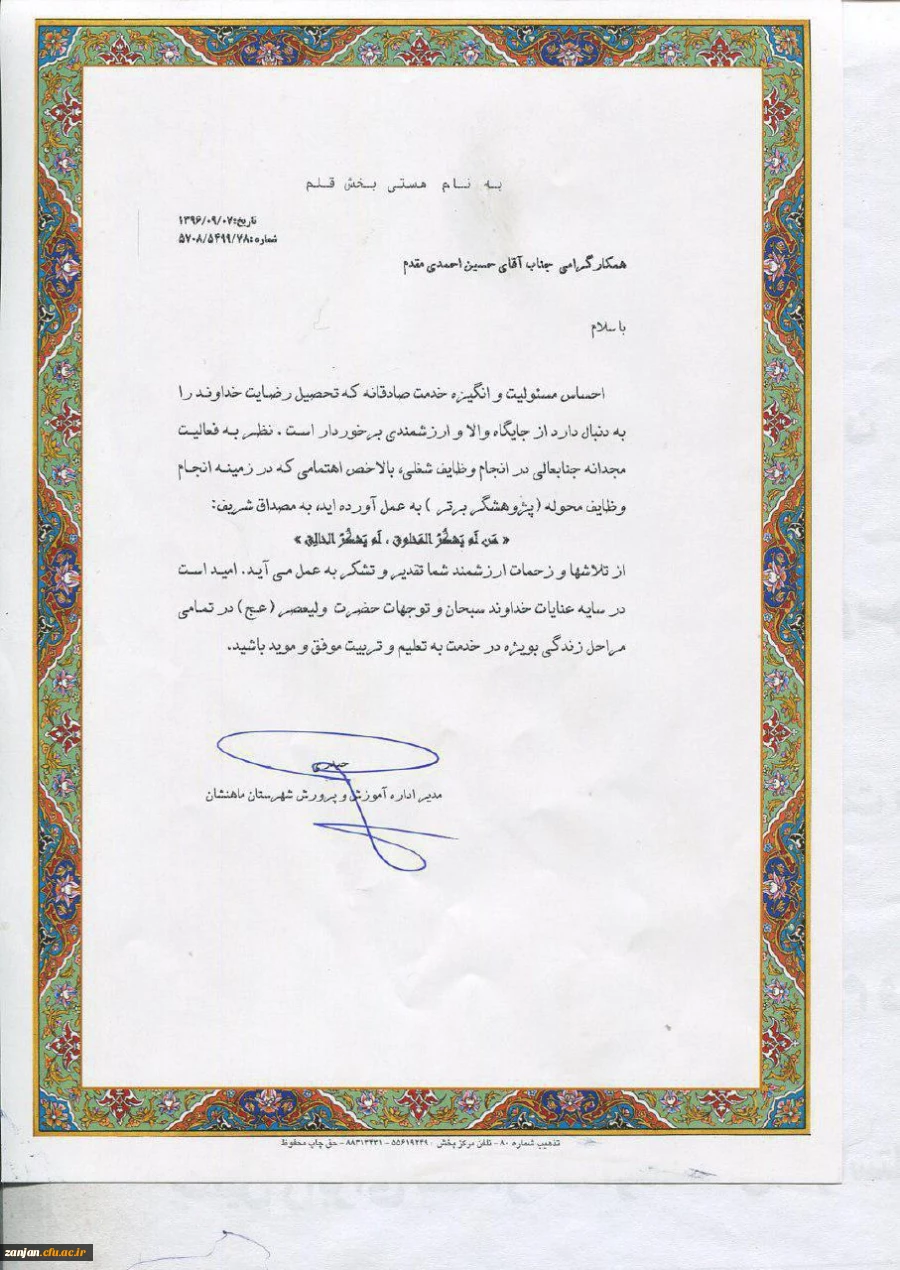 به نام هستی بخش قلم
تاریخ: ۱۳۹۶/۰۹/۰۷
شماره: ۵۷۰۸/۵۴۹۹/۷۸
همکار گرامی جناب آقای حسین احمدی مقدم
با سلام
احساس مسئولیت و انگیزه خدمت صادقانه که تحصیل رضایت خداوند را
به دنبال دارد از جایگاه والا و ارزشمندی برخوردار است . نظر به فعالیت
مجدانه جنابعالی در انجام وظایف شغلی، بالاخص اهتمامی که در زمینه انجام
وظایف محوله (پژوهشگر برتر ) به عمل آورده اید، به مصداق شریف:
« مَن لَم یَشکُرُ المَخلوق ، لَم یَشکُرُ الخالِق »
از تلاشها و زحمات ارزشمند شما تقدیر و تشکر به عمل می آید. امید است
در سایه عنایات خداوند سبحان و توجهات حضرت ولیعصر (عج) در تمامی
مراحل زندگی بویژه در خدمت به تعلیم و تربیت موفق و موید باشید.
حیدری
مدیر اداره آموزش و پرورش شهرستان ماهنشان
تذهیب شماره ۸۰ - تلفن مرکز پخش : ۵۵۶۱۹۲۴۹ - ۸۸۳۱۳۴۳۱ - حق چاپ محفوظ
zanjan.cfu.ac.ir